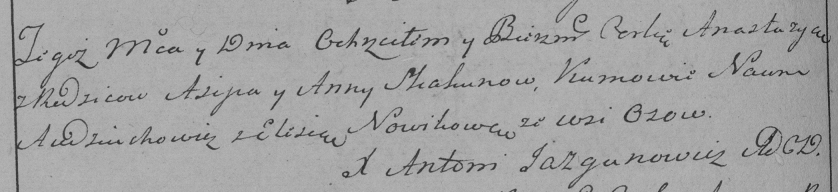 Tegoż Mca y Dnia Ochrzciłem y Bierzm Corkę Anastazyę
z Rodzicow Asipa y Anny Skakunow, Kumowie Naum
Audziuchowicz z Elisięą Nowikową ze wsi Ozow.
X Antoni Jazgunowicz